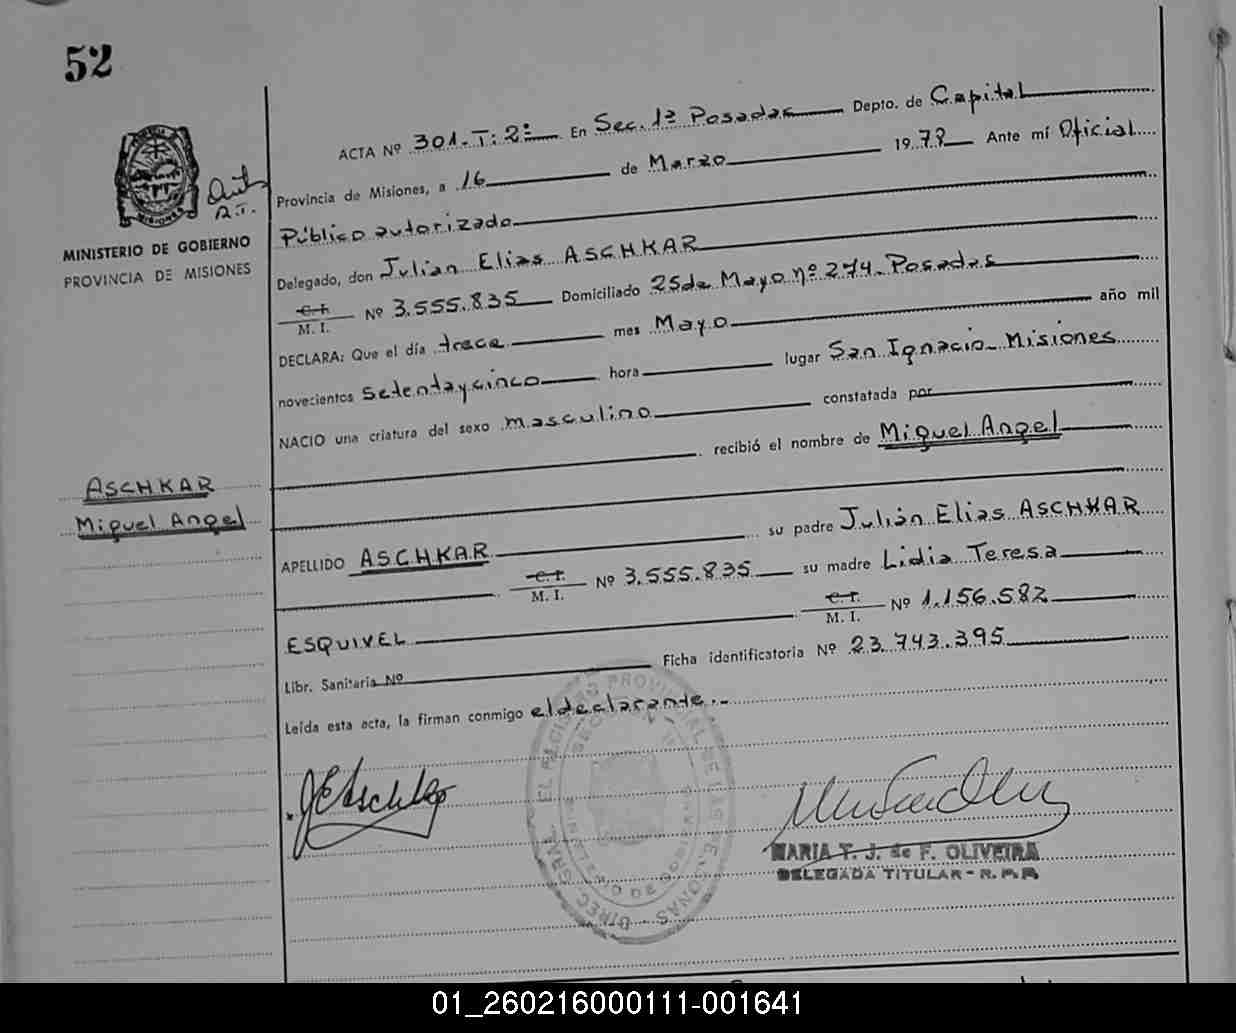 52
ACTA Nº 301. T: 2º En Sec. 1ª Posadas Depto. de Capital
Provincia de Misiones, a 16 de Marzo 1978 Ante mí Oficial
Público autorizado
MINISTERIO DE GOBIERNO
PROVINCIA DE MISIONES
Delegado, don Julian Elias ASCHKAR
C.I. M. I. Nº 3.555.835 Domiciliado 25 de Mayo nº 274. Posadas
DECLARA: Que el día trece mes Mayo año mil
novecientos setentaycinco hora lugar San Ignacio - Misiones
NACIO una criatura del sexo masculino constatada por
recibió el nombre de Miguel Angel
ASCHKAR
Miguel Angel
APELLIDO ASCHKAR su padre Julián Elias ASCHKAR
C.I. M. I. Nº 3.555.835 su madre Lidia Teresa
ESQUIVEL C.I. M. I. Nº 1.156.582
Libr. Sanitaria Nº Ficha identificatoria Nº 23.743.395
Leída esta acta, la firman conmigo el declarante.-
MARIA T. J. de F. OLIVEIRA
DELEGADA TITULAR - R. P. P.
01_260216000111-001641